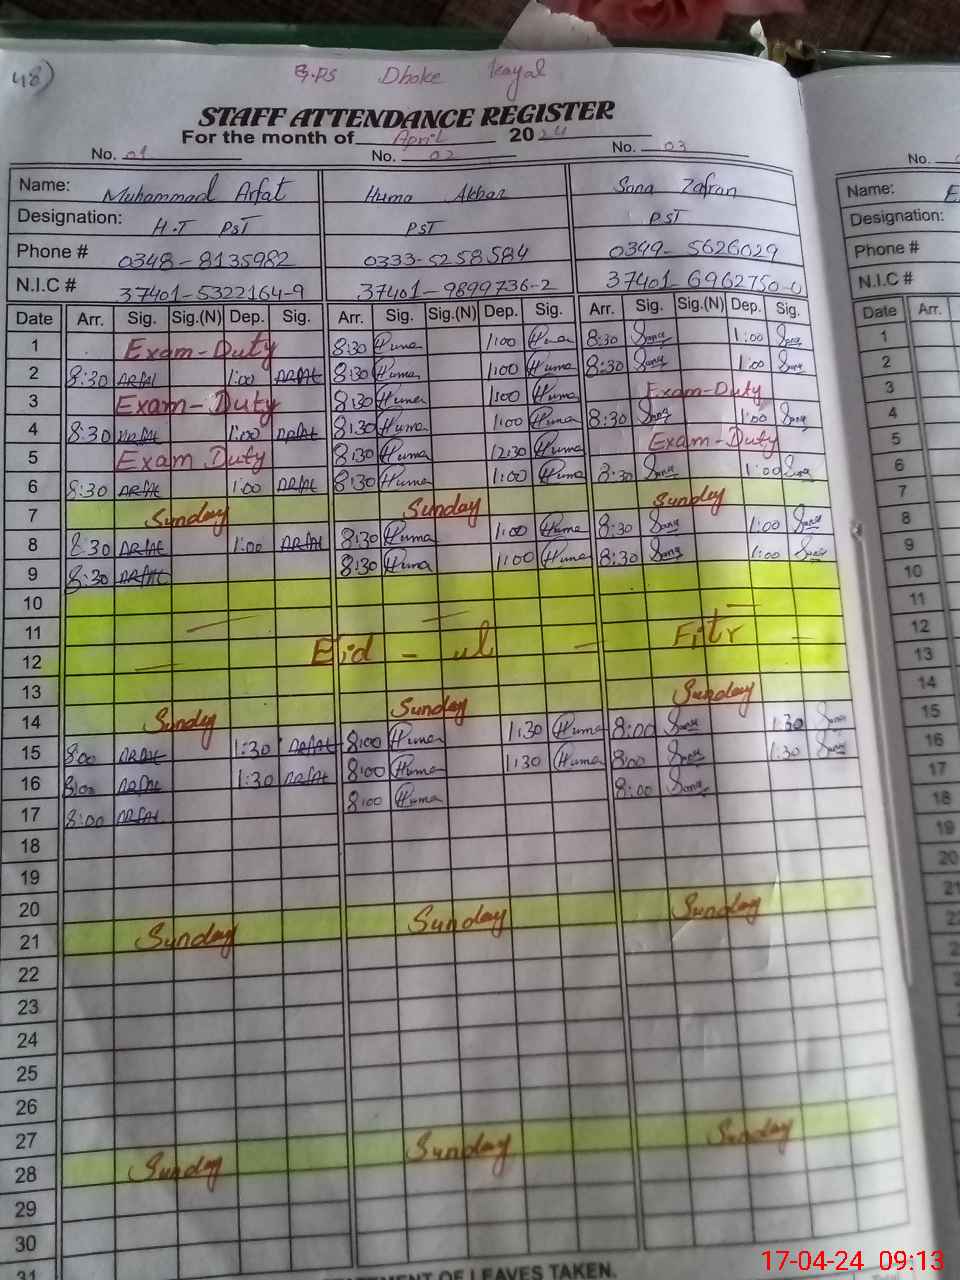 48)
G.PS Dhoke Kayal
STAFF ATTENDANCE REGISTER
For the month of April 2024
No. 01 No. 02 No. 03 No.
Name: Muhammad Arfat Huma Akbar Sana Zafran Name:
Designation: H.T PST PST PST Designation:
Phone # 0348-8135982 0333-5258584 0349-5626029 Phone #
N.I.C # 37401-5322164-9 37401-9899736-2 37401-6962750-0 N.I.C #
Date Arr. Sig. Sig.(N) Dep. Sig. Arr. Sig. Sig.(N) Dep. Sig. Arr. Sig. Sig.(N) Dep. Sig. Date Arr.
1 Exam-Duty 8:30 Huma 1:00 Huma 8:30 Sana 1:00 Sana 1
2 8:30 ARfAt 1:00 ARfAt 8:30 Huma 1:00 Huma 8:30 Sana 1:00 Sana 2
3 Exam-Duty 8:30 Huma 1:00 Huma Exam-Duty 3
4 8:30 ARfAt 1:00 ARfAt 8:30 Huma 1:00 Huma 8:30 Sana 1:00 Sana 4
5 Exam Duty 8:30 Huma 12:30 Huma Exam-Duty 5
6 8:30 ARfAt 1:00 ARfAt 8:30 Huma 1:00 Huma 8:30 Sana 1:00 Sana 6
7 Sunday Sunday Sunday 7
8 8:30 ARfAt 1:00 ARfAt 8:30 Huma 1:00 Huma 8:30 Sana 1:00 Sana 8
9 8:30 ARfAt 8:30 Huma 1:00 Huma 8:30 Sana 1:00 Sana 9
10 10
11 Eid - ul - Fitr - 11
12 12
13 13
14 Sunday Sunday Sunday 14
15 8:00 ARfAt 1:30 ARfAt 8:00 Huma 1:30 Huma 8:00 Sana 1:30 Sana 15
16 8:00 ARfAt 1:30 ARfAt 8:00 Huma 1:30 Huma 8:00 Sana 1:30 Sana 16
17 8:00 ARfAt 8:00 Huma 8:00 Sana 17
18 18
19 19
20 20
21 Sunday Sunday Sunday 21
22
23
24
25
26
27
28 Sunday Sunday Sunday
29
30
31
OF LEAVES TAKEN.
17-04-24 09:13